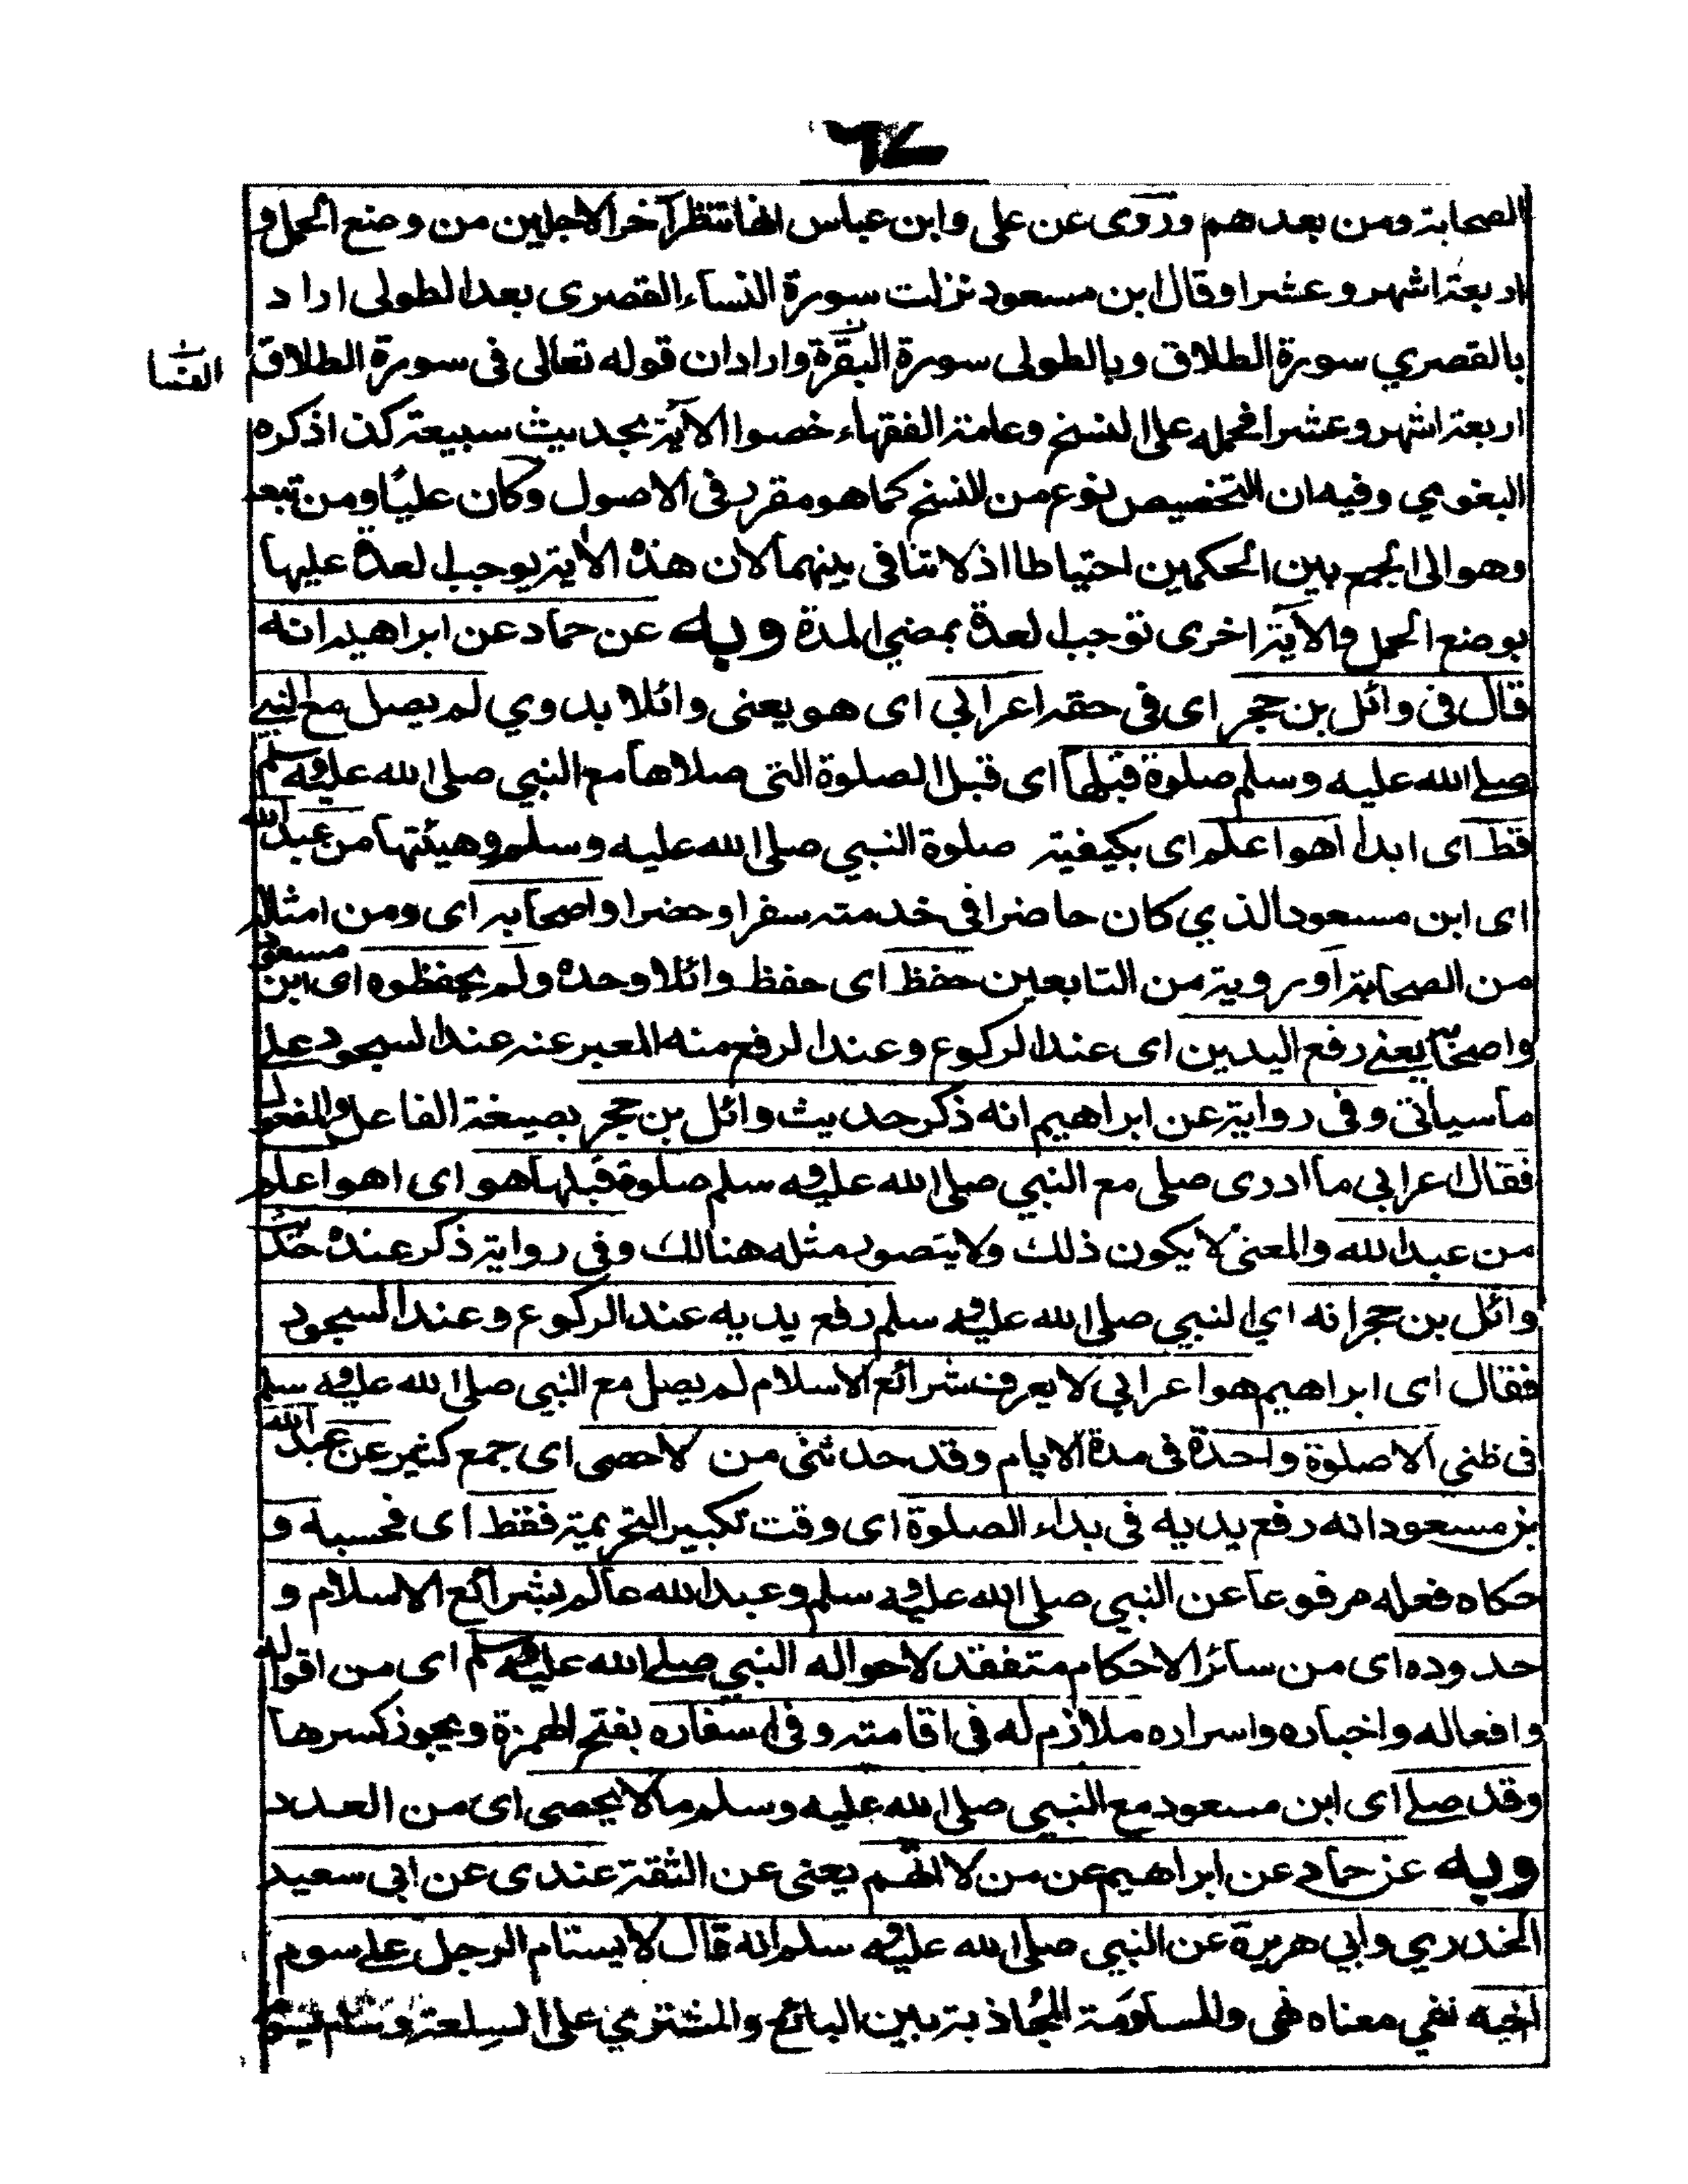 ٦٧
الصحابة ومن بعدهم وروى عن على وابن عباس انها تنتظر آخر الاجلين من وضع الحمل و
اربعة اشهر وعشرا وقال ابن مسعود نزلت سورة النساء القصرى بعد الطولى اراد
بالقصري سورة الطلاق وبالطولى سورة البقرة واراد ان قوله تعالى فى سورة الطلاق
اربعة اشهر وعشرا فحمله على النسخ وعامة الفقهاء خصوا الاية بحديث سبيعة كذا ذكره
البغوي وفيه ان التخصيص نوع من النسخ كما هو مقرر فى الاصول وكان عليا ومن تبعه
وهوالى الجمع بين الحكمين احتياطا اذ لا تنافى بينهما لان هذه الأية يوجب لعدة عليها
بوضع الحمل والآية اخرى توجب لعدة بمضي المدة وبه عن حماد عن ابراهيم انه
قال فى وائل بن حجر اى فى حقه اعرابي اى هو يعنى وائلا بدوي لم يصل مع النبي
صلى الله عليه وسلم صلوة قبلها اى قبل الصلوة التى صلاها مع النبي صلى الله عليه وسلم
قط اى ابدا اهو اعلم اى بكيفية صلوة النبي صلى الله عليه وسلم وهيئتها من عبد الله
اى ابن مسعود الذي كان حاضرا فى خدمته سفرا وحضرا واصحابه اى ومن امثاله
من الصحابة او روية من التابعين حفظ اى حفظ وائلا وحده ولم يحفظوه اى ابن مسعود
واصحابه يعنى رفع اليدين اى عند الركوع وعند الرفع منه المعبر عنه عند السجود على
ما سياتى وفى رواية عن ابراهيم انه ذكر حديث وائل بن حجر بصيغة الفاعل والمفعول
فقال اعرابي ما ادرى صلى مع النبي صلى الله عليه وسلم صلوة قبلها هو اى اهو اعلم
من عبد الله والمعنى لا يكون ذلك ولا يتصور مثله هنالك وفى رواية ذكر عنده حديث
وائل بن حجر انه اي النبي صلى الله عليه وسلم رفع يديه عند الركوع وعند السجود
فقال اى ابراهيم هو اعرابي لا يعرف شرائع الاسلام لم يصل مع النبي صلى الله عليه وسلم
فى ظني الا صلوة واحدة فى مدة الايام وقد حدثنى من لا احصى اى جمع كثير عن عبد الله
بن مسعود انه رفع يديه فى بداء الصلوة اى وقت تكبير التحريمة فقط اى فحسبه و
حكاه فعله مرفوعا عن النبي صلى الله عليه وسلم وعبد الله عالم بشرائع الاسلام و
حدوده اى من سائر الاحكام متفقد لاحواله النبي صلى الله عليه وسلم اى من اقواله
وافعاله واخباره واسراره ملازم له فى اقامته وفى اسفاره بفتح الهمزة ويجوز كسرها
وقد صلى اى ابن مسعود مع النبي صلى الله عليه وسلم ما لا يحصى اى من العدد
وبه عن حماد عن ابراهيم عن من لا اتهم يعنى عن الثقة عندى عن ابى سعيد
الخدري وابي هريرة عن النبي صلى الله عليه وسلم انه قال لا يستام الرجل على سوم
اخيه نفي معناه نهى والمساومة المجاذبة بين البائع والمشتري على السلعة